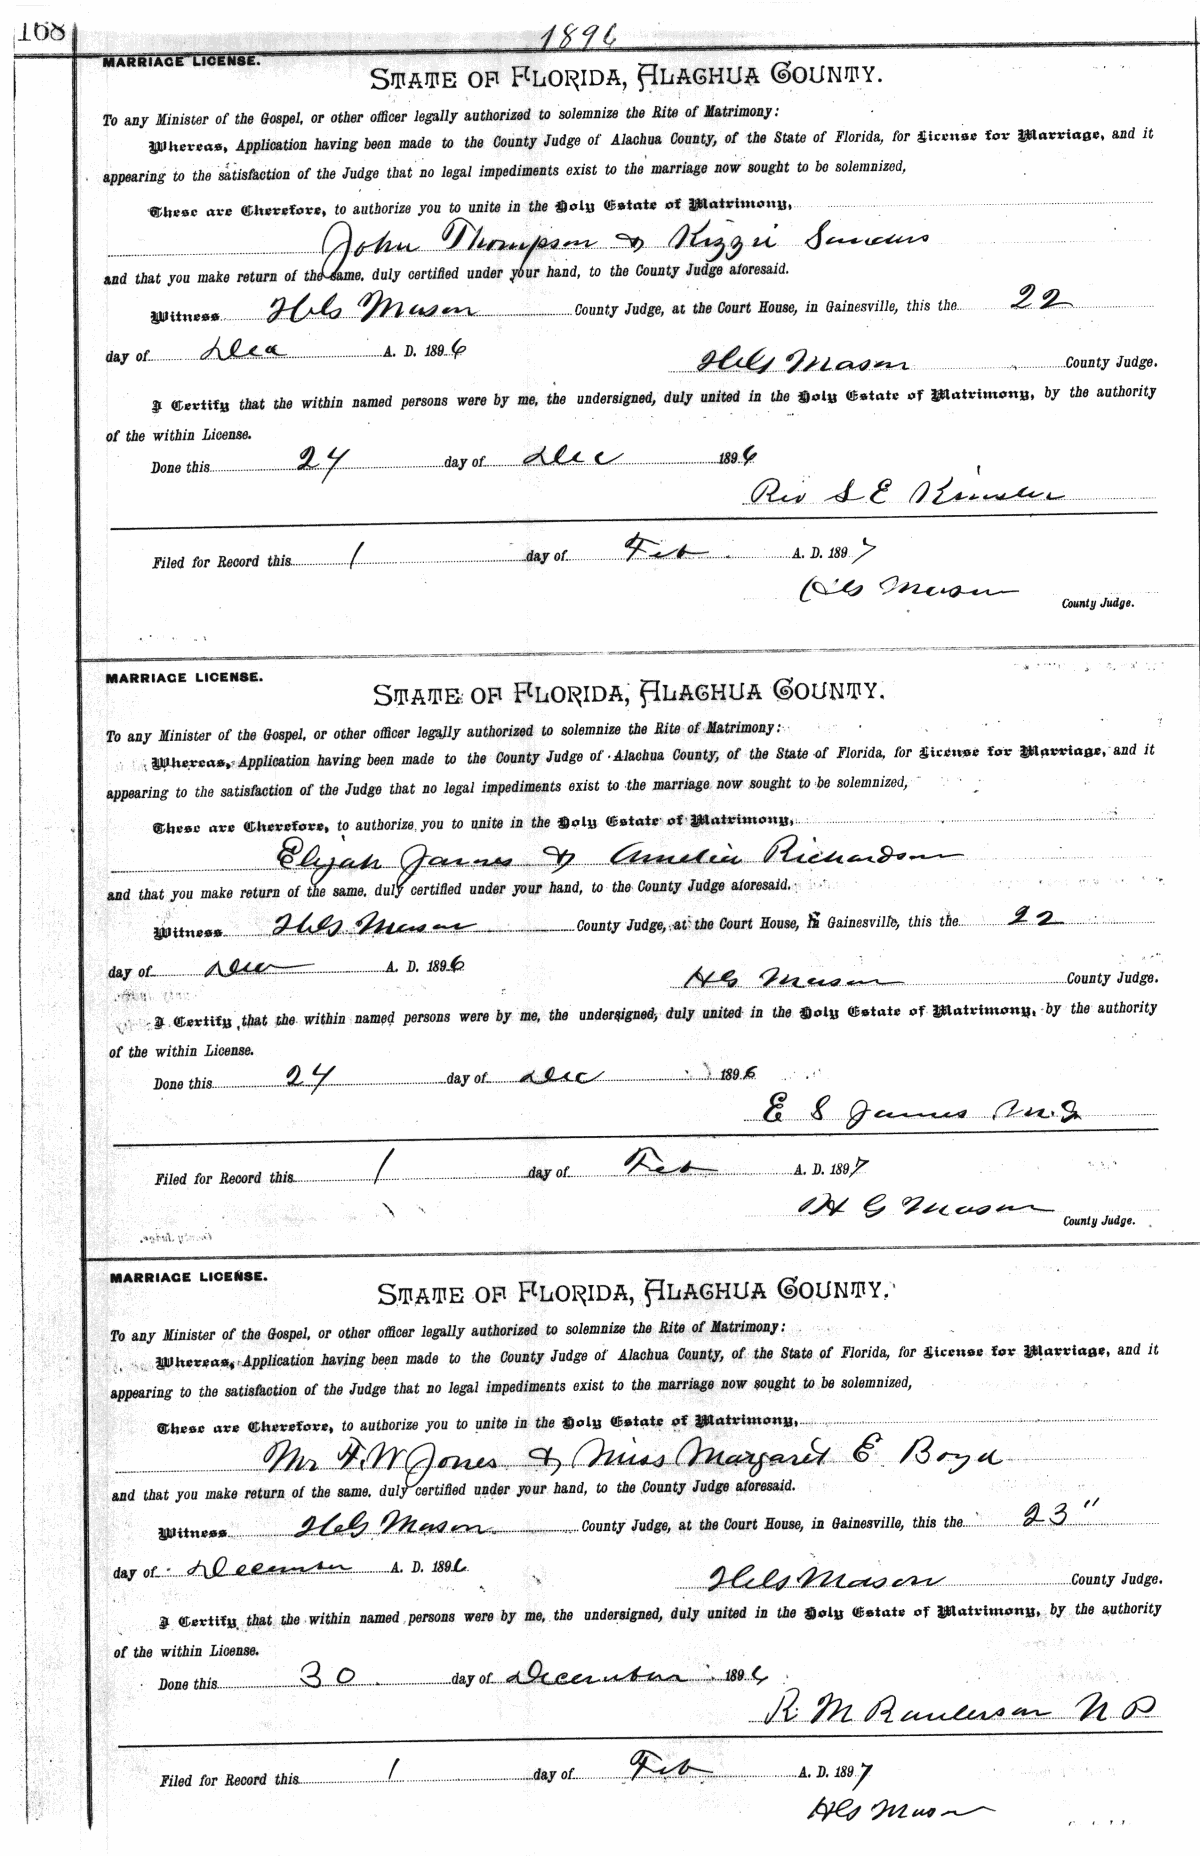 168
1896
MARRIAGE LICENSE.
STATE OF FLORIDA, ALACHUA COUNTY.
To any Minister of the Gospel, or other officer legally authorized to solemnize the Rite of Matrimony:
Whereas, Application having been made to the County Judge of Alachua County, of the State of Florida, for License for Marriage, and it
appearing to the satisfaction of the Judge that no legal impediments exist to the marriage now sought to be solemnized,
These are Therefore, to authorize you to unite in the Holy Estate of Matrimony,
John Thompson & Kizzie Sanders
and that you make return of the same, duly certified under your hand, to the County Judge aforesaid.
Witness H G Mason County Judge, at the Court House, in Gainesville, this the 22
day of Dec A. D. 1896 H G Mason County Judge.
I Certify that the within named persons were by me, the undersigned, duly united in the Holy Estate of Matrimony, by the authority
of the within License.
Done this 24 day of Dec 1896
Rev S E
Filed for Record this 1 day of Feb A. D. 1897
H G Mason
County Judge.
MARRIAGE LICENSE.
STATE OF FLORIDA, ALACHUA COUNTY.
To any Minister of the Gospel, or other officer legally authorized to solemnize the Rite of Matrimony:
Whereas, Application having been made to the County Judge of Alachua County, of the State of Florida, for License for Marriage, and it
appearing to the satisfaction of the Judge that no legal impediments exist to the marriage now sought to be solemnized,
These are Therefore, to authorize you to unite in the Holy Estate of Matrimony,
Elijah James & Amelia Richardson
and that you make return of the same, duly certified under your hand, to the County Judge aforesaid.
Witness H G Mason County Judge, at the Court House, in Gainesville, this the 22
day of Dec A. D. 1896 H G Mason County Judge.
I Certify that the within named persons were by me, the undersigned, duly united in the Holy Estate of Matrimony, by the authority
of the within License.
Done this 24 day of Dec 1896
E S James M.G
Filed for Record this 1 day of Feb A. D. 1897
H G Mason
County Judge.
MARRIAGE LICENSE.
STATE OF FLORIDA, ALACHUA COUNTY.
To any Minister of the Gospel, or other officer legally authorized to solemnize the Rite of Matrimony:
Whereas, Application having been made to the County Judge of Alachua County, of the State of Florida, for License for Marriage, and it
appearing to the satisfaction of the Judge that no legal impediments exist to the marriage now sought to be solemnized,
These are Therefore, to authorize you to unite in the Holy Estate of Matrimony,
Mr F. W Jones & Miss Margaret E Boyd
and that you make return of the same, duly certified under your hand, to the County Judge aforesaid.
Witness H G Mason County Judge, at the Court House, in Gainesville, this the 23"
day of December A. D. 1896 H G Mason County Judge.
I Certify that the within named persons were by me, the undersigned, duly united in the Holy Estate of Matrimony, by the authority
of the within License.
Done this 30 day of December 1896
R. M Raulerson N P
Filed for Record this 1 day of Feb A. D. 1897
H G Mason